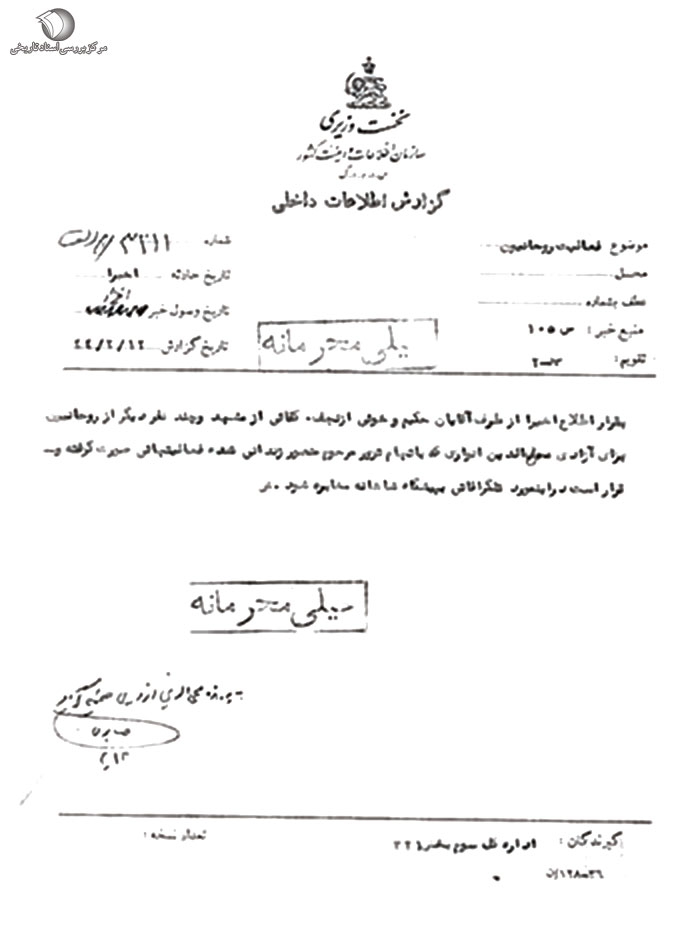 مرکز بررسی اسناد تاریخی
نخست وزیری
سازمان اطلاعات و امنیت کشور
گزارش اطلاعات داخلی
موضوع فعالیت روحانیون
شماره
محل
تاریخ حادثه اخیرا
عطف بشماره
تاریخ وصول خبر
منبع خبر: س ۱۰۵
تاریخ گزارش ۴۴/۲/۱۲
تقویم:
خیلی محرمانه
بقرار اطلاع اخیرا از طرف آقایان حکیم و خوئی از نجف، کفائی از مشهد و چند نفر دیگر از روحانیون
برای آزادی محی‌الدین انواری که باتهام ترور مرحوم منصور زندانی شده فعالیتهائی صورت گرفته و
قرار است در اینمورد تلگرافاتی به پیشگاه شاهانه مخابره شود.
خیلی محرمانه
به پرونده محی الدین انواری ضمیمه
گیرندگان: اداره کل سوم بخش ۳۲۱
تعداد نسخه: